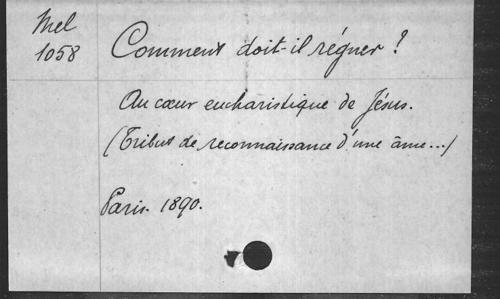 Mel
1058
Comment doit-il régner ?
Au cœur eucharistique de Jésus.
(Tribut de reconnaissance d'une âme...)
Paris. 1890.